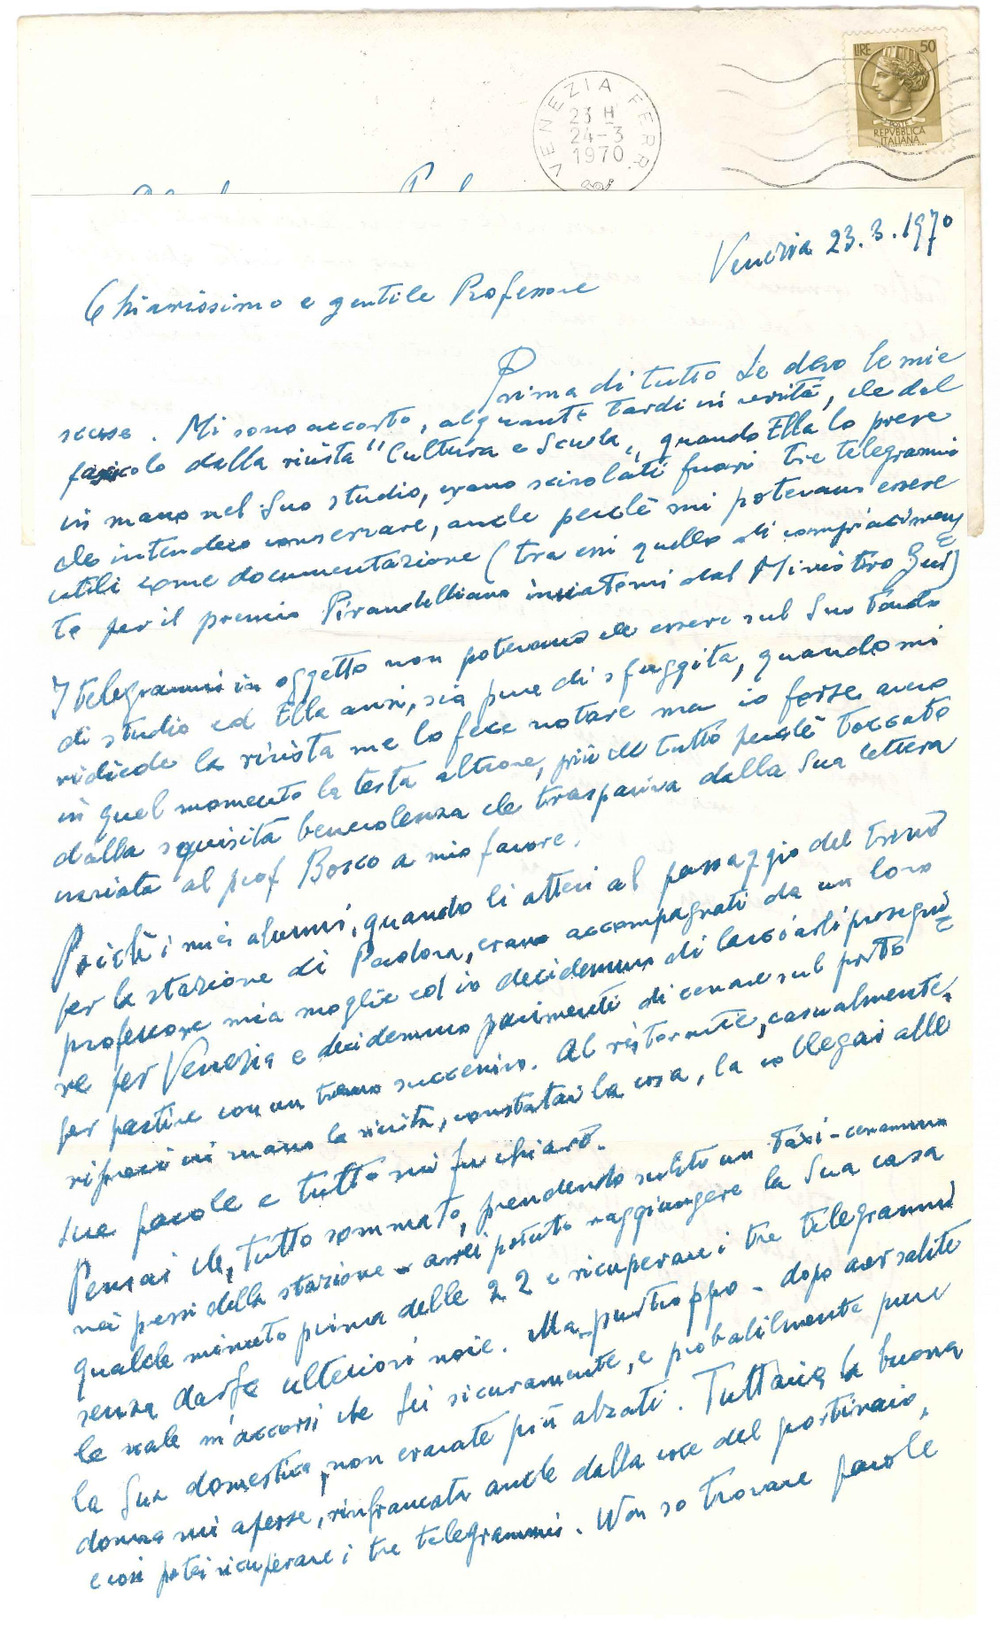 VENEZIA FERR.
23 H
24-3
1970
LIRE 50
POSTE
REPVBBLICA
ITALIANA
Venezia 23.3.1970
Chiarissimo e gentile Professore
Prima di tutto Le devo le mie
scuse. Mi sono accorto, alquanto tardi in verità, che dal
fascicolo della rivista "Cultura e Scuola", quando Ella lo prese
in mano nel Suo studio, erano scivolati fuori tre telegrammi
che intendevo conservare, anche perchè mi potevano essere
utili come documentazione (tra essi quello di compiacimen=
to per il premio Pirandelliano inviatomi dal Ministro Gui)
I telegrammi in oggetto non potevano che essere sul Suo tavolo
di studio ed Ella anzi, sia pure di sfuggita, quando mi
ridiede la rivista me lo fece notare ma io forse avevo
in quel momento la testa altrove, più che tutto perchè toccato
dalla squisita benevolenza che traspariva dalla Sua lettera
inviata al prof Bosco a mio favore.
Poichè i miei alunni, quando li attesi al passaggio del treno
per la stazione di Padova, erano accompagnati da un loro
professore mia moglie ed io decidemmo di lasciarli prosegui=
re per Venezia e decidemmo parimenti di cenare sul posto
per partire con un treno successivo. Al ristorante, casualmente,
ripresi in mano la rivista, constatai la cosa, la collegai alle
Sue parole e tutto mi fu chiaro.
Pensai che, tutto sommato, prendendo subito un taxi - ce n'erano
nei pressi della stazione - avrei potuto raggiungere la Sua casa
qualche minuto prima delle 22 e ricuperare i tre telegrammi
senza darLe ulteriori noie. Ma purtroppo - dopo aver salite
le scale m'accorsi che Lei sicuramente, e probabilmente pure
la Sua domestica, non eravate più alzati. Tuttavia la buona
donna mi aperse, rinfrancata anche dalla voce del portinaio,
e così potei ricuperare i tre telegrammi. Non so trovare parole